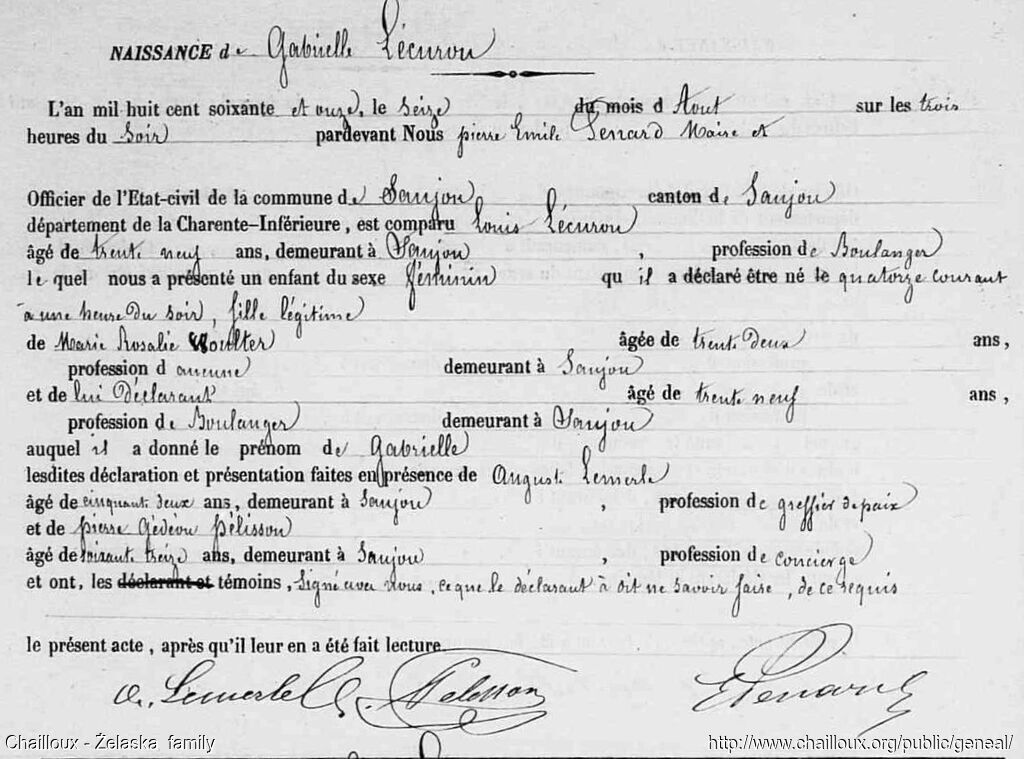 NAISSANCE de Gabrielle Lécurou
L'an mil huit cent soixante et onze, le seize du mois d Aout sur les trois
heures du soir pardevant Nous pierre Emile Maire et
Officier de l'Etat-civil de la commune de Saujon canton de Saujon
département de la Charente-Inférieure, est comparu Louis Lécurou
âgé de trente neuf ans, demeurant à Saujon, profession de Boulanger
le quel nous a présenté un enfant du sexe féminin qu il a déclaré être né le quatorze courant
à une heure du soir, fille légitime
de Marie Rosalie âgée de trente deux ans,
profession d aucune demeurant à Saujon
et de lui Déclarant âgé de trente neuf ans,
profession de Boulanger demeurant à Saujon
auquel il a donné le prénom de Gabrielle
lesdites déclaration et présentation faites en présence de Auguste Lemerle
âgé de cinquante deux ans, demeurant à Saujon, profession de greffier de paix
et de pierre Gédéon Pélisson
âgé de soixante treize ans, demeurant à Saujon, profession de concierge
et ont, les déclarant et témoins, signé avec nous, ce que le déclarant à dit ne savoir faire, de ce requis
le présent acte, après qu'il leur en a été fait lecture
A. Lemerle Pelisson
Chailloux - Żelaska family http://www.chailloux.org/public/geneal/